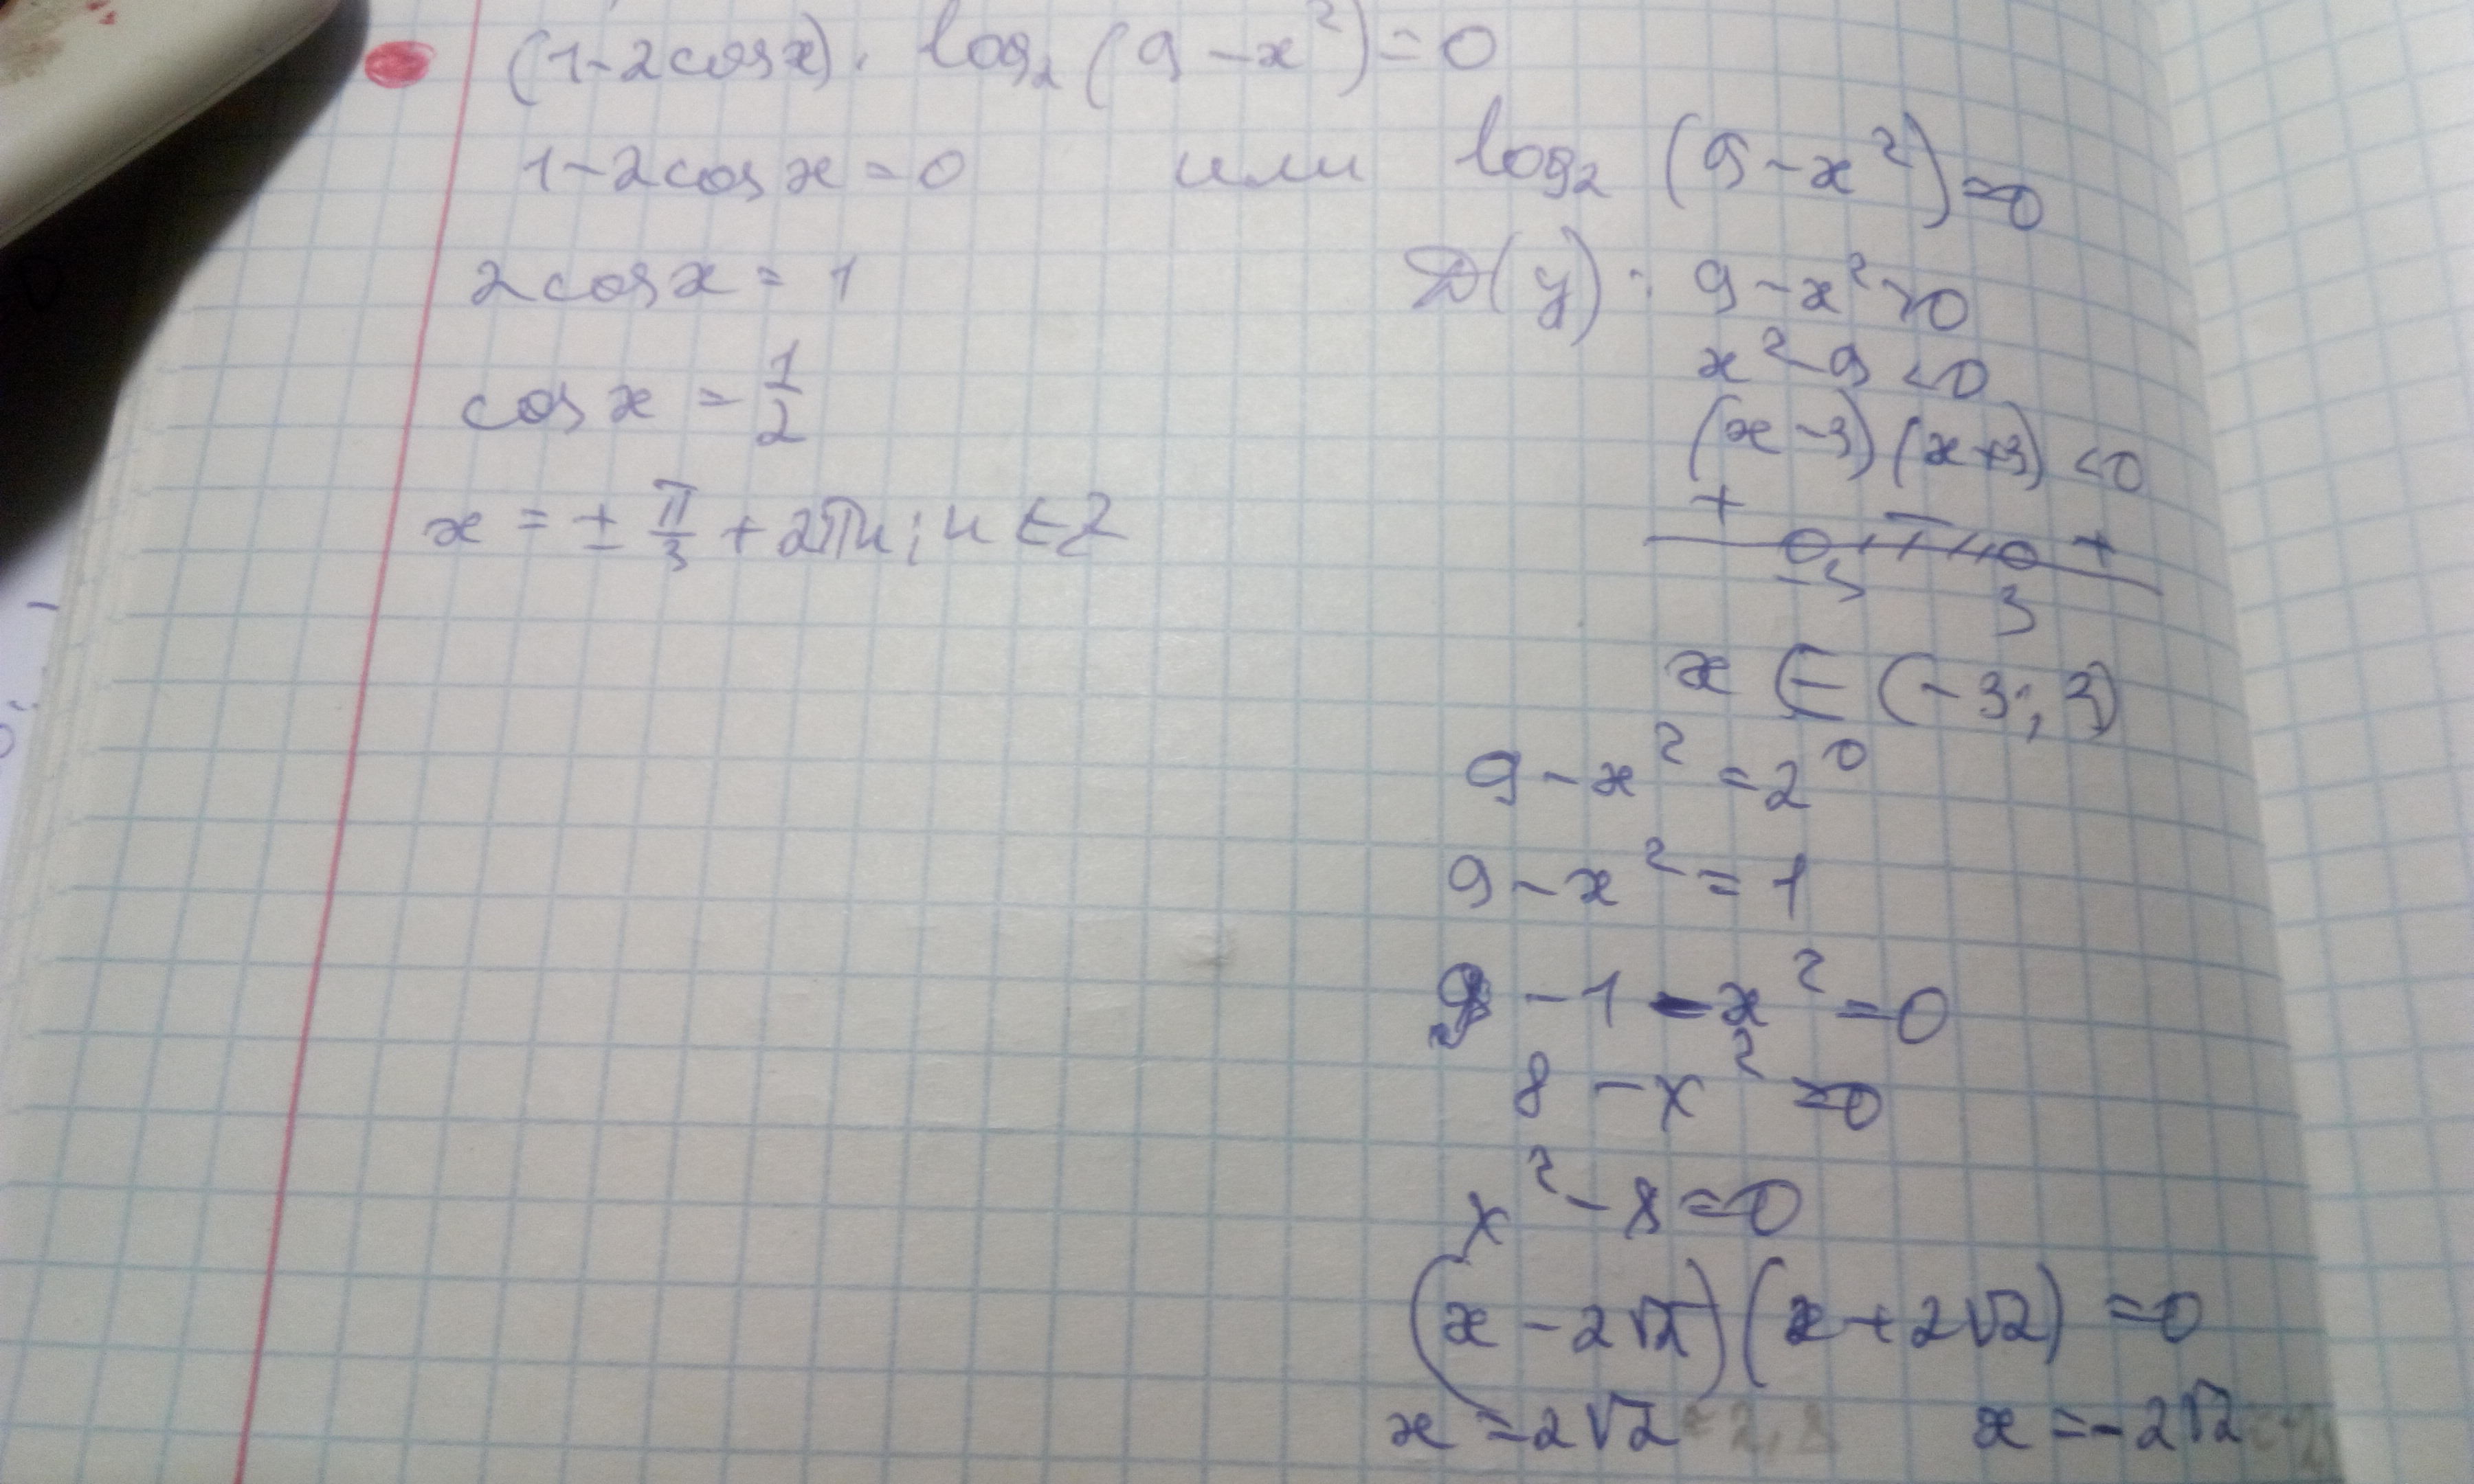 (1-2cosx)·log₂(9-x²)=0
1-2cosx=0 или log₂(9-x²)=0
2cosx=1
cosx=1/2
x=±π/3+2πn; n∈Z
D(y): 9-x²>0
x²-9<0
(x-3)(x+3)<0
+ - +
-3 3
x∈(-3;3)
9-x²=2⁰
9-x²=1
9-1-x²=0
8-x²=0
x²-8=0
(x-2√2)(x+2√2)=0
x=2√2≈2,8 x=-2√2